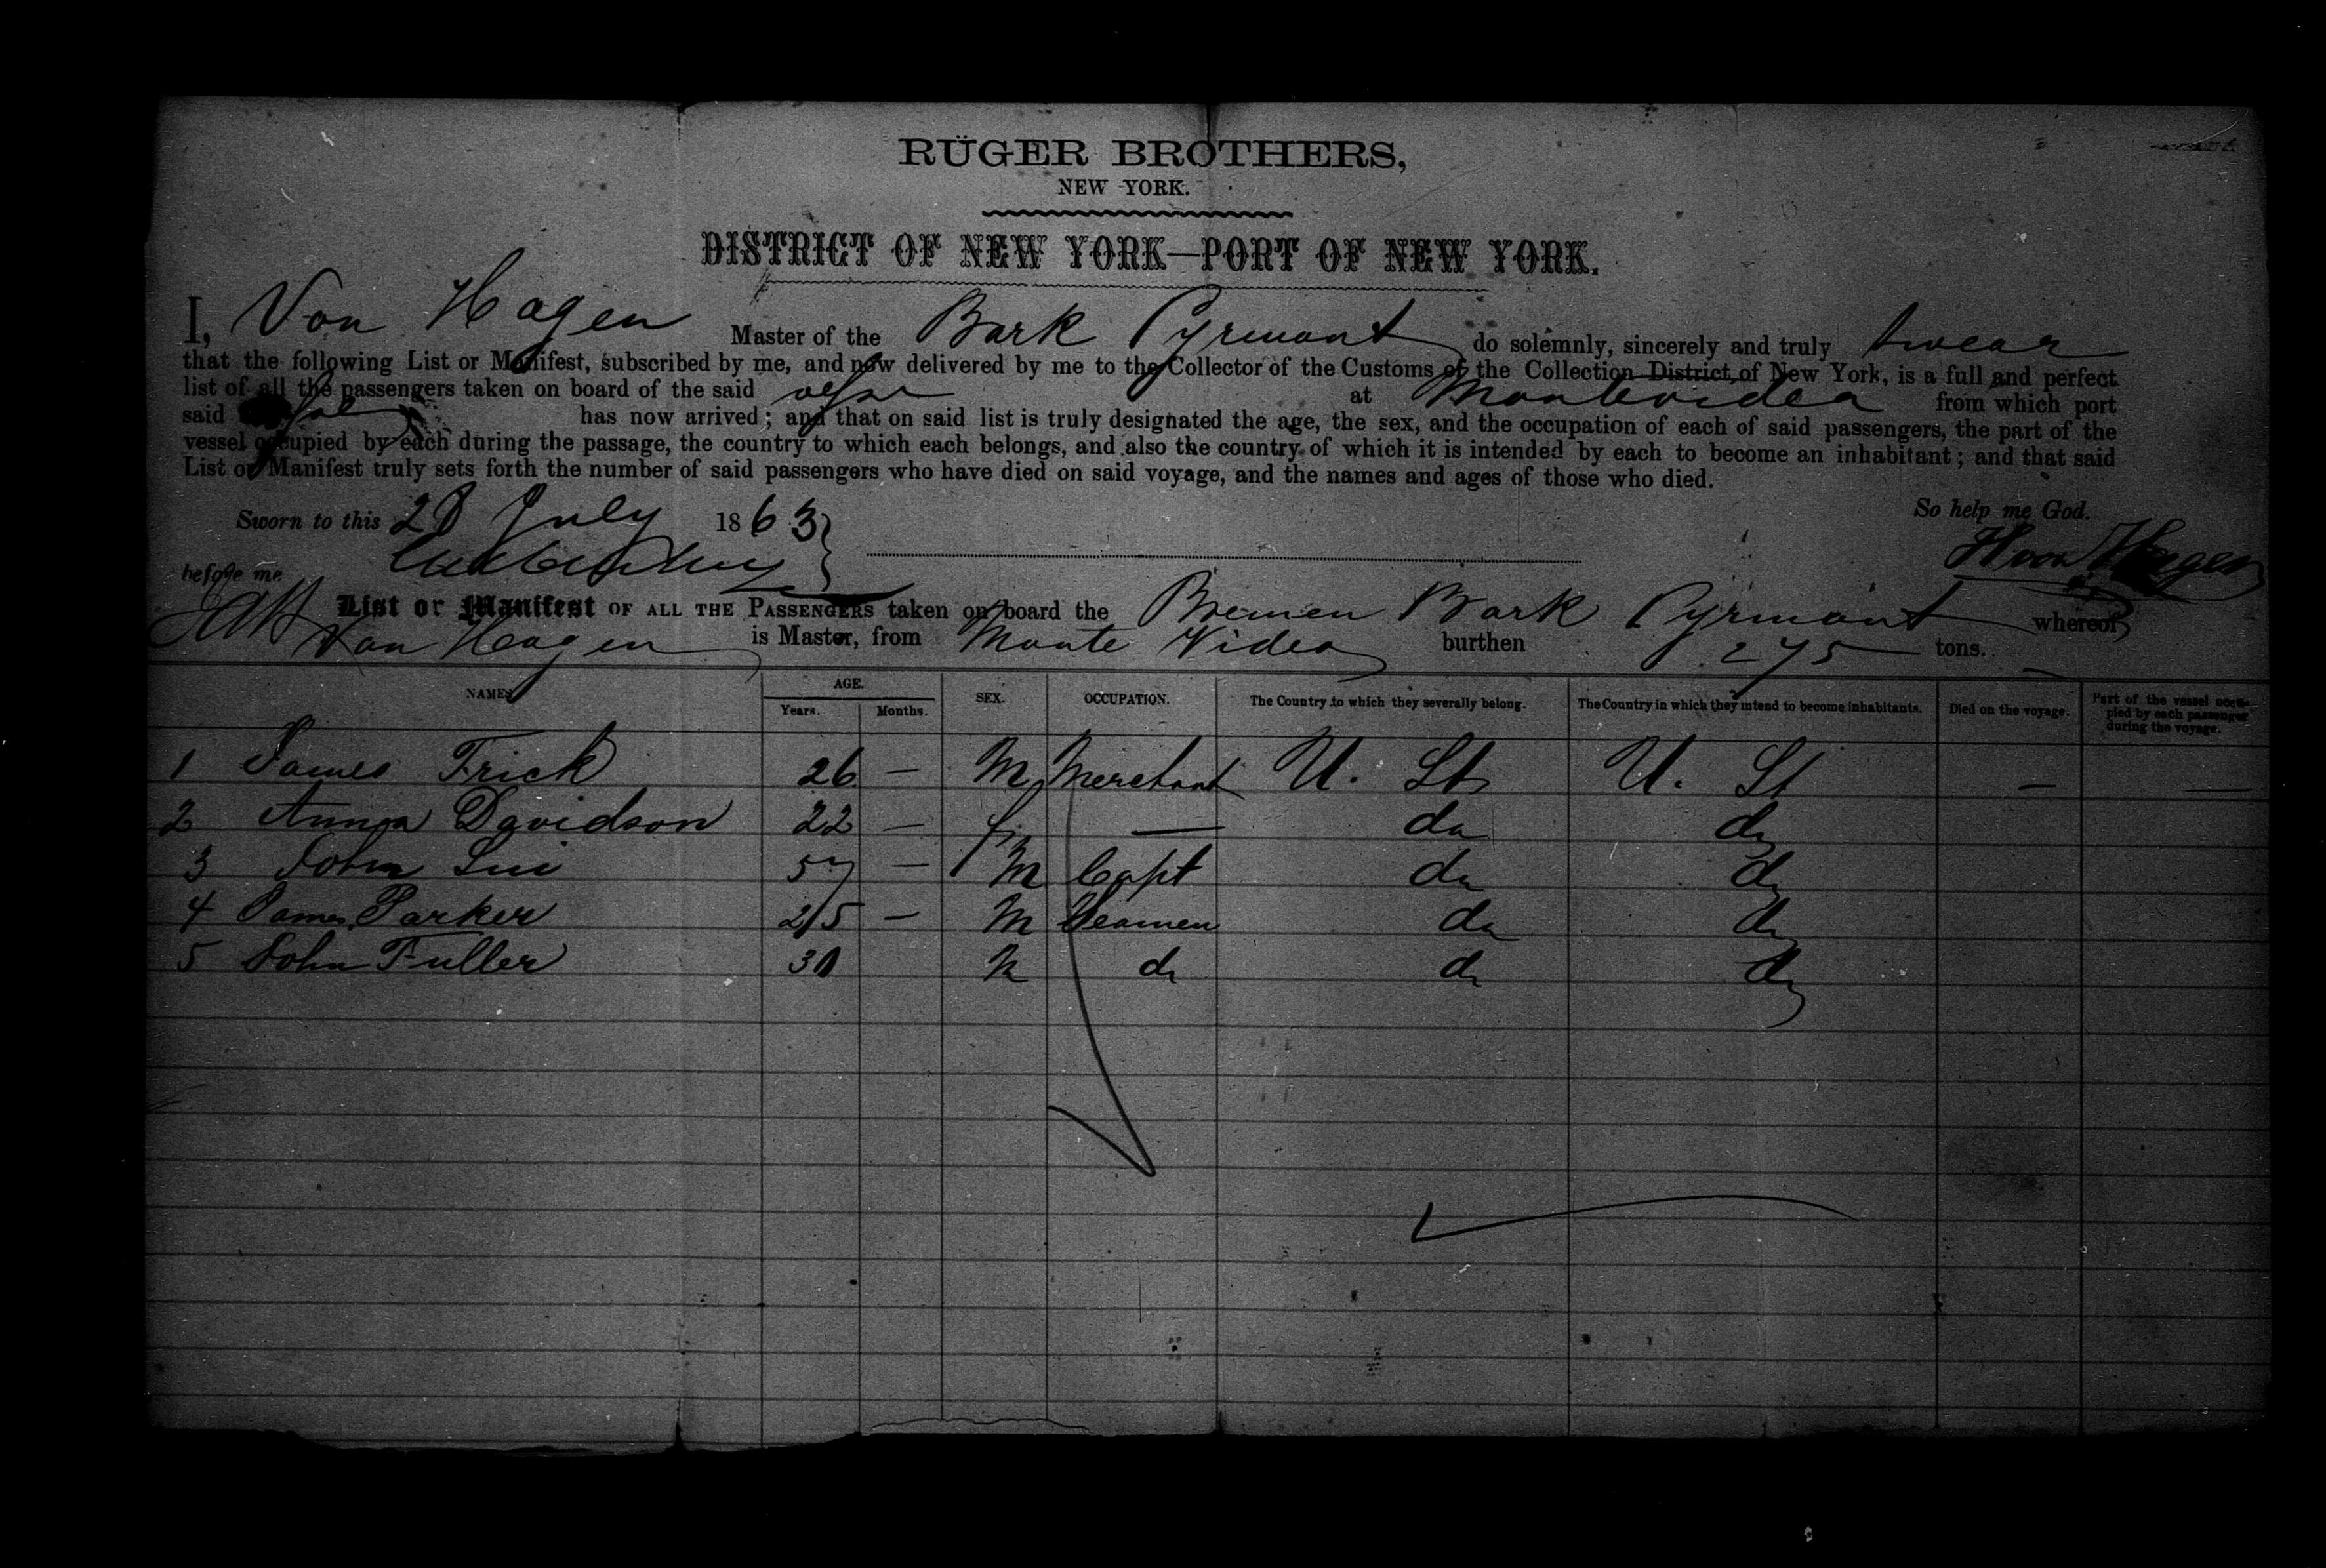 RÜGER BROTHERS,
NEW YORK.
DISTRICT OF NEW YORK—PORT OF NEW YORK.
I, Von Hagen Master of the Bark Pyrmont do solemnly, sincerely and truly swear
that the following List or Manifest, subscribed by me, and now delivered by me to the Collector of the Customs of the Collection District of New York, is a full and perfect
list of all the passengers taken on board of the said at Montevideo from which port
said has now arrived; and that on said list is truly designated the age, the sex, and the occupation of each of said passengers, the part of the
vessel occupied by each during the passage, the country to which each belongs, and also the country of which it is intended by each to become an inhabitant; and that said
List or Manifest truly sets forth the number of said passengers who have died on said voyage, and the names and ages of those who died.
So help me God.
Sworn to this 28 July 1863
before me
List or Manifest OF ALL THE PASSENGERS taken on board the Bremen Bark Pyrmont whereof
Von Hagen is Master, from Monte Video burthen 275 tons.
NAMES AGE. Years. Months. SEX. OCCUPATION. The Country to which they severally belong. The Country in which they intend to become inhabitants. Died on the voyage. Part of the vessel occupied by each passenger during the voyage.
1 James Frick 26 — M Merchant U. St U. St — —
2 Anna Davidson 22 — f — do do
3 John 57 — M Capt do do
4 James Parker 25 — M Seamen do do
5 John Fuller 30 M do do do